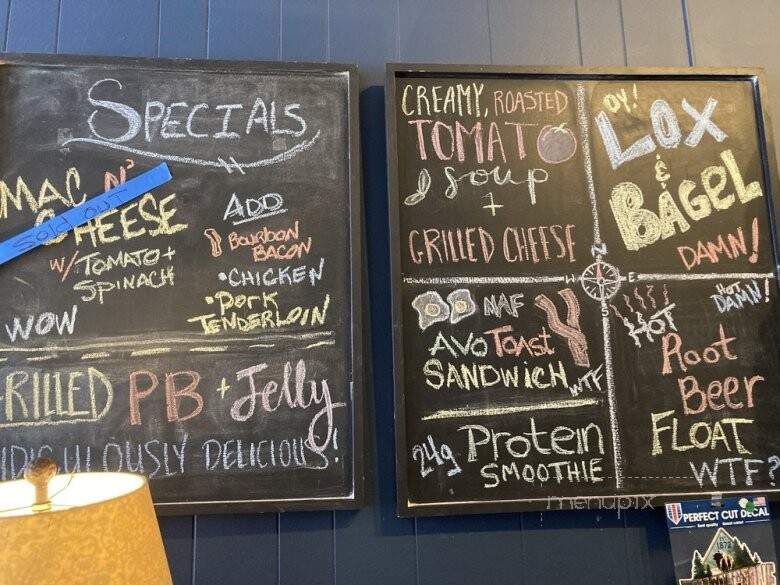 SPECIALS
MAC N'
CHEESE
Sold out
W/ TOMATO +
SPINACH
WOW
ADD
BOURBON
BACON
• CHICKEN
• PORK
TENDERLOIN
GRILLED PB + Jelly
RIDICULOUSLY DELICIOUS!
CREAMY, ROASTED
TOMATO
Soup
+
GRILLED CHEESE
OY!
LOX
&
BAGEL
DAMN!
N
W E
S
NAF
AVO TOAST
SANDWICH WTF
24g Protein
SMOOTHIE
HOT
DAMN!
HOT
Root
Beer
FLOAT
WTF?
menupix
PERFECT CUT DECAL
1872